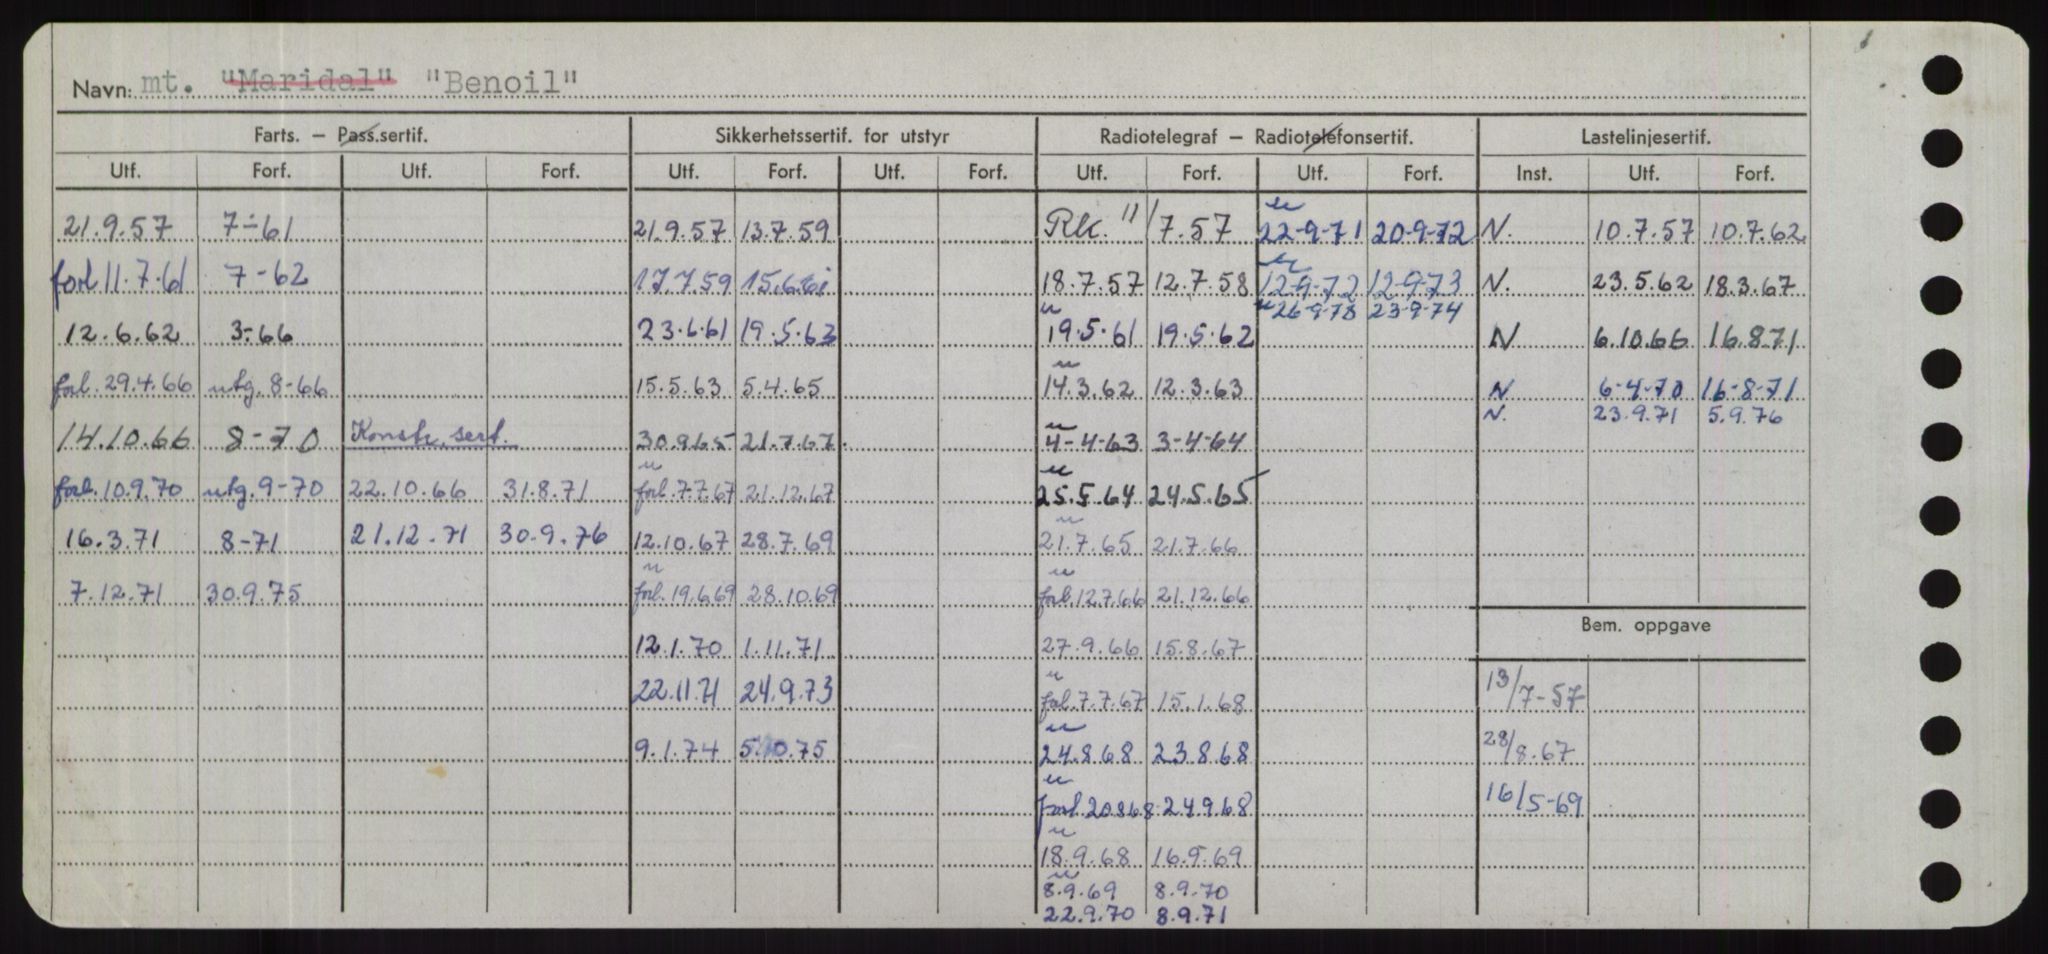 Navn: mt. "Maridal" "Benoil"
Farts. – Pass.sertif. Sikkerhetssertif. for utstyr Radiotelegraf – Radiotelefonsertif. Lastelinjesertif.
Utf. Forf. Utf. Forf. Utf. Forf. Utf. Forf. Utf. Forf. Utf. Forf. Inst. Utf. Forf.
21.9.57 7-61 21.9.57 13.7.59 Rk. 11/7.57 u 22-9-71 20-9-72 N. 10.7.57 10.7.62
forl 11.7.61 7-62 17.7.59 15.6.61 18.7.57 12.7.58 u 12-9-72 12-9-73 N. 23.5.62 18.3.67
u 26-9-73 23-9-74
12.6.62 3-66 23.6.61 19.5.63 u 19.5.61 19.5.62 N 6.10.66 16.8.71
forl. 29.4.66 utg. 8-66 15.5.63 5.4.65 u 14.3.62 12.3.63 N 6-4-70 16-8-71
N. 23.9.71 5.9.76
14.10.66 8-70 Konstr. sert. 30.9.65 21.7.67. u 4-4-63 3-4-64
forl. 10.9.70 utg. 9-70 22.10.66 31.8.71 u forl. 7.7.67 21.12.67 u 25.5.64 24.5.65
16.3.71 8-71 21.12.71 30.9.76 12.10.67 28.7.69 u 21.7.65 21.7.66
7.12.71 30.9.75 u forl. 19.6.69 28.10.69 u forl. 12.7.66 21.12.66
Bem. oppgave
12.1.70 1.11.71 27.9.66 15.8.67
22.11.71 24.9.73 u forl. 7.7.67 15.1.68 13/7-57
9.1.74 5.10.75 u 24.8.68 23.8.68 28/8.67
u forl. 20.8.68 24.9.68 16/5-69
u 18.9.68 16.9.69
u 8.9.69 8.9.70
22.9.70 8.9.71